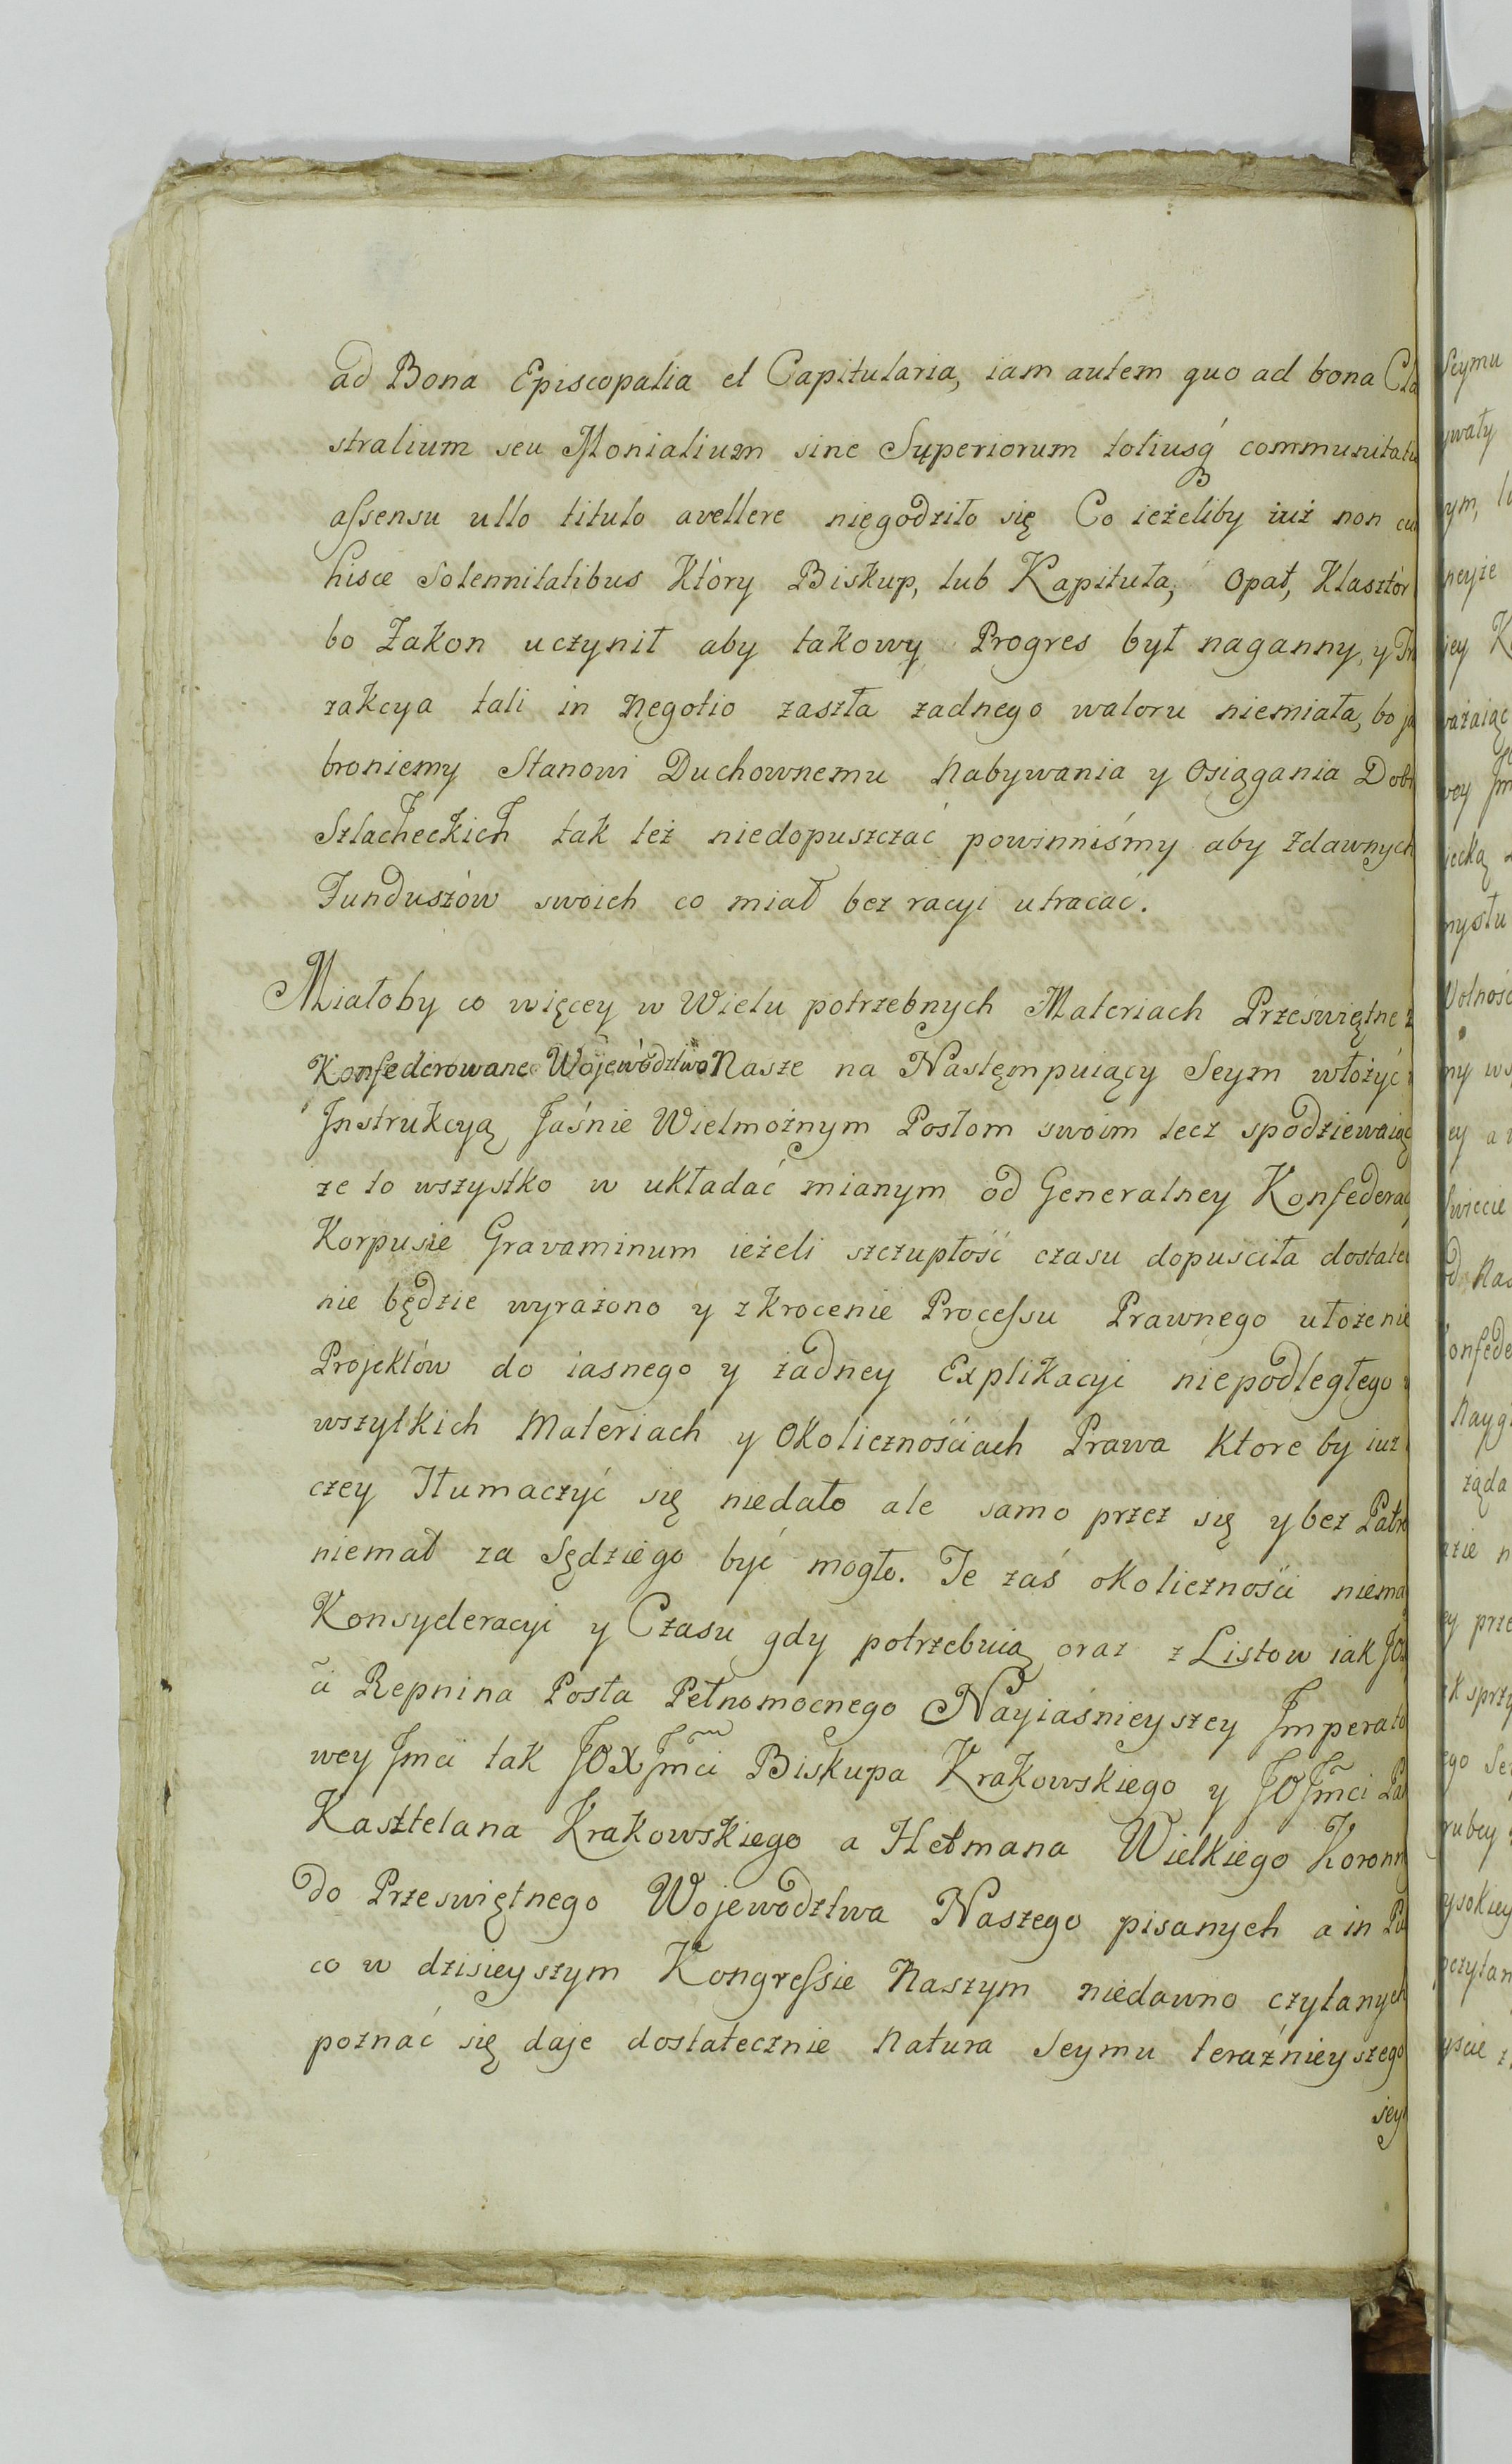 ad Bona Episcopalia et Capitularia, iam autem quo ad bona
stralium seu Monialium sine Superiorum totiusq́ communitatis
aſsensu ullo titulo avellere niegodziło się Co ieżeliby iuż non
hisce Solennitatibus Który Biskup, lub Kapituła, Opat, Klasztór
bo Zakon uczynił aby takowy Progres był naganny, y
zakcya tali in Negotio zaszła zadnego waloru niemiała, bo
broniemy Stanowi Duchownemu Nabywania y Osiągania Dobr
Szlacheckich tak też niedopuszczać powinniśmy aby zdawnych
Funduszów swoich co miał bez racyi utracać.
Miałoby co więcey w Wielu potrzebnych Materiach Przeświętne
Konfederowane Województwo Nasze na Nastęmpuiący Seym włożyć
Jnstrukcyą Jaśnie Wielmożnym Posłom swoim lecz spodziewaiąc
ze to wszystko w układać mianym od Generalney
Korpusie Gravaminum ieżeli szczupłość czasu dopusciła
nie będzie wyrażono y zkrocenie Proceſsu Prawnego ułożenie
Projektów do iasnego y żadney Explikacyi niepodległego
wszytkich Materiach y Okolicznościach Prawa Ktore by iuż
czey Tłumaczyć się niedało ale samo przez się y bez
niemal za Sędziego być mogło. Te zaś okoliczności
Konsyderacyi y Czasu gdy potrzebuią oraz z Listow iak
ã Repnina Posła Pełnomocnego Nayiaśnieyszey
wey Jmci tak JOXJm̃ci Biskupa Krakowskiego y JOJm̃ci
Kasztelana Krakowskiego a Hetmana Wielkiego
do Przeświętnego Wojewodztwa Naszego pisanych a in
co w dzisieyszym Kongreſsie Naszym niedawno czytanych
poznać się daje dostatecznie Natura Seymu teraźnieyszego
sey